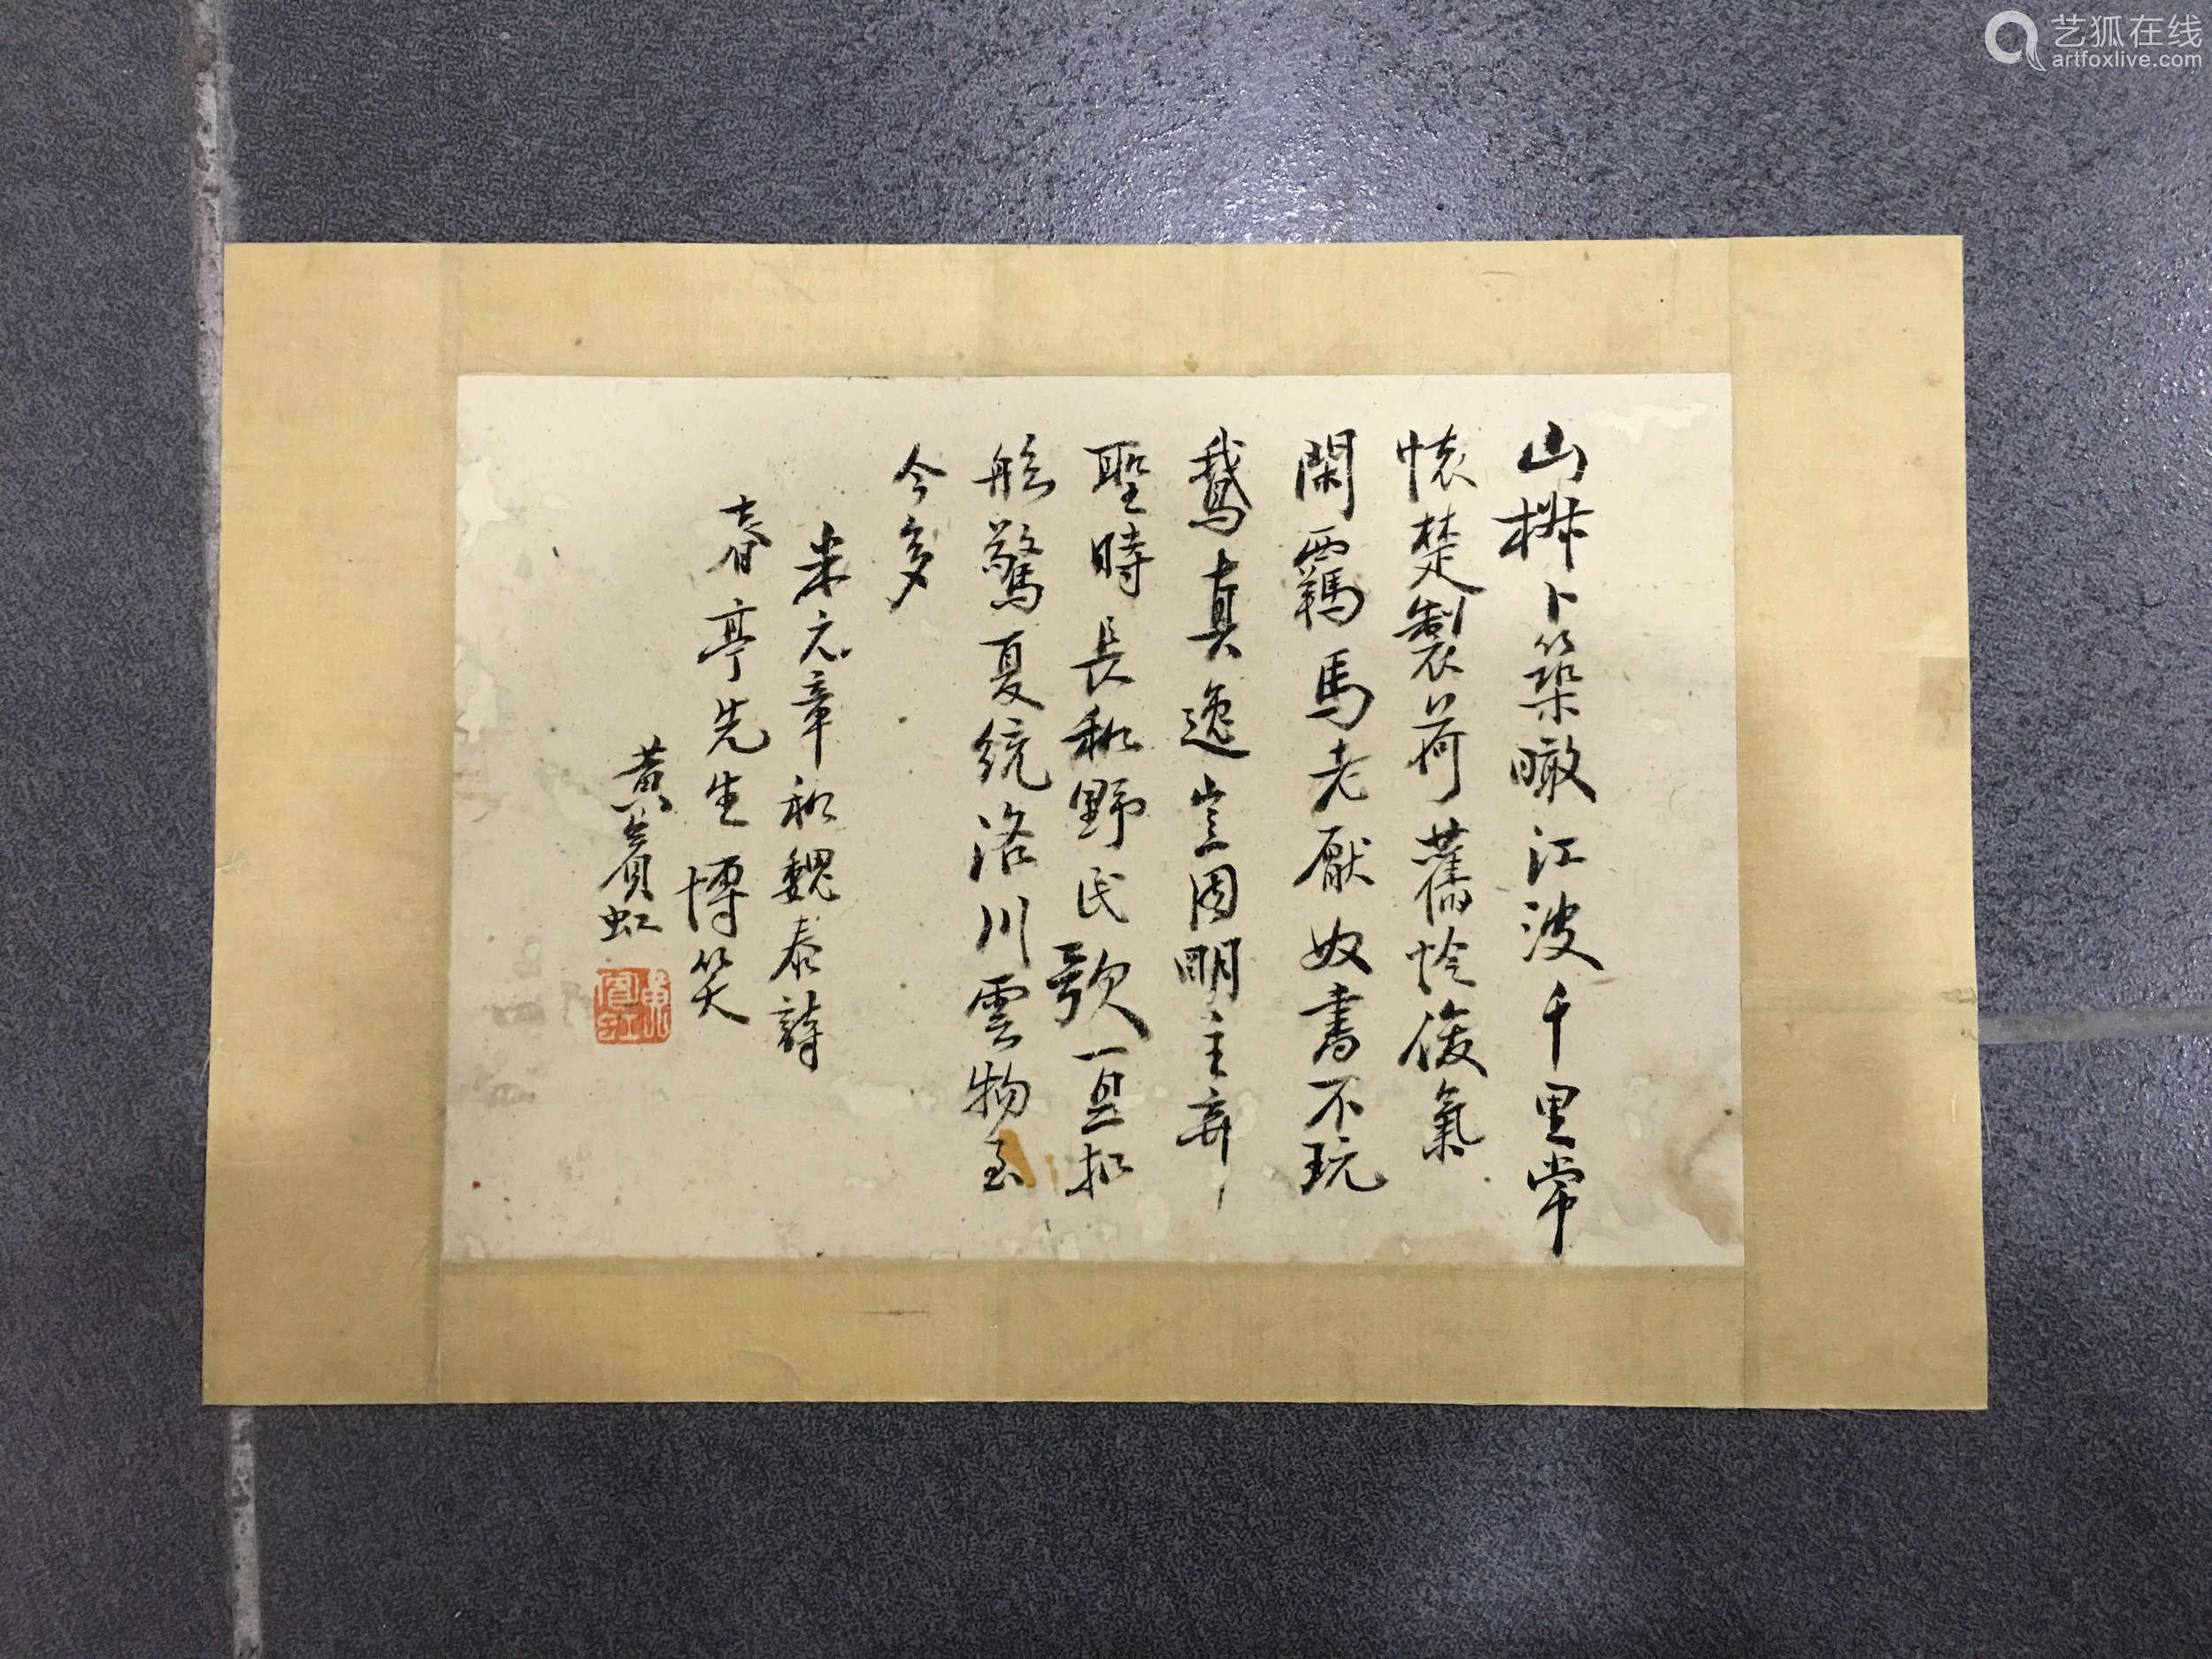 山椒卜築瞰江波千里常
懷楚製荷舊憐俊氣
閑羈馬老厭奴書不玩
鵝真逸豈因明主棄
聖時長和野民歌一盃扣
舷驚夏統洛川雲物至
今多
米元章和魏泰詩
春亭先生博笑
黃賓虹
黃賓虹
艺狐在线
artfoxlive.com